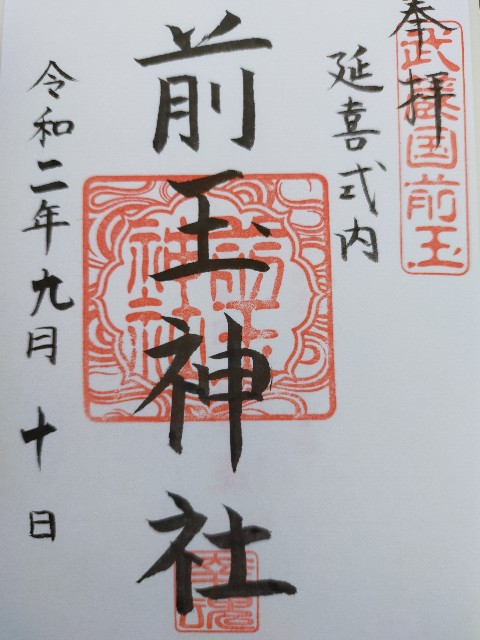 奉拝
武蔵国前玉
延喜式内
前玉神社
前玉
神社
幸魂
令和二年九月十日